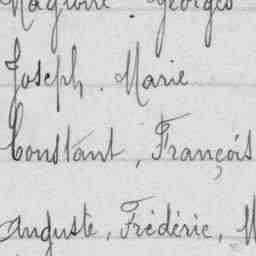 Georges
Joseph. Marie
Constant, François
Auguste, Frédéric,